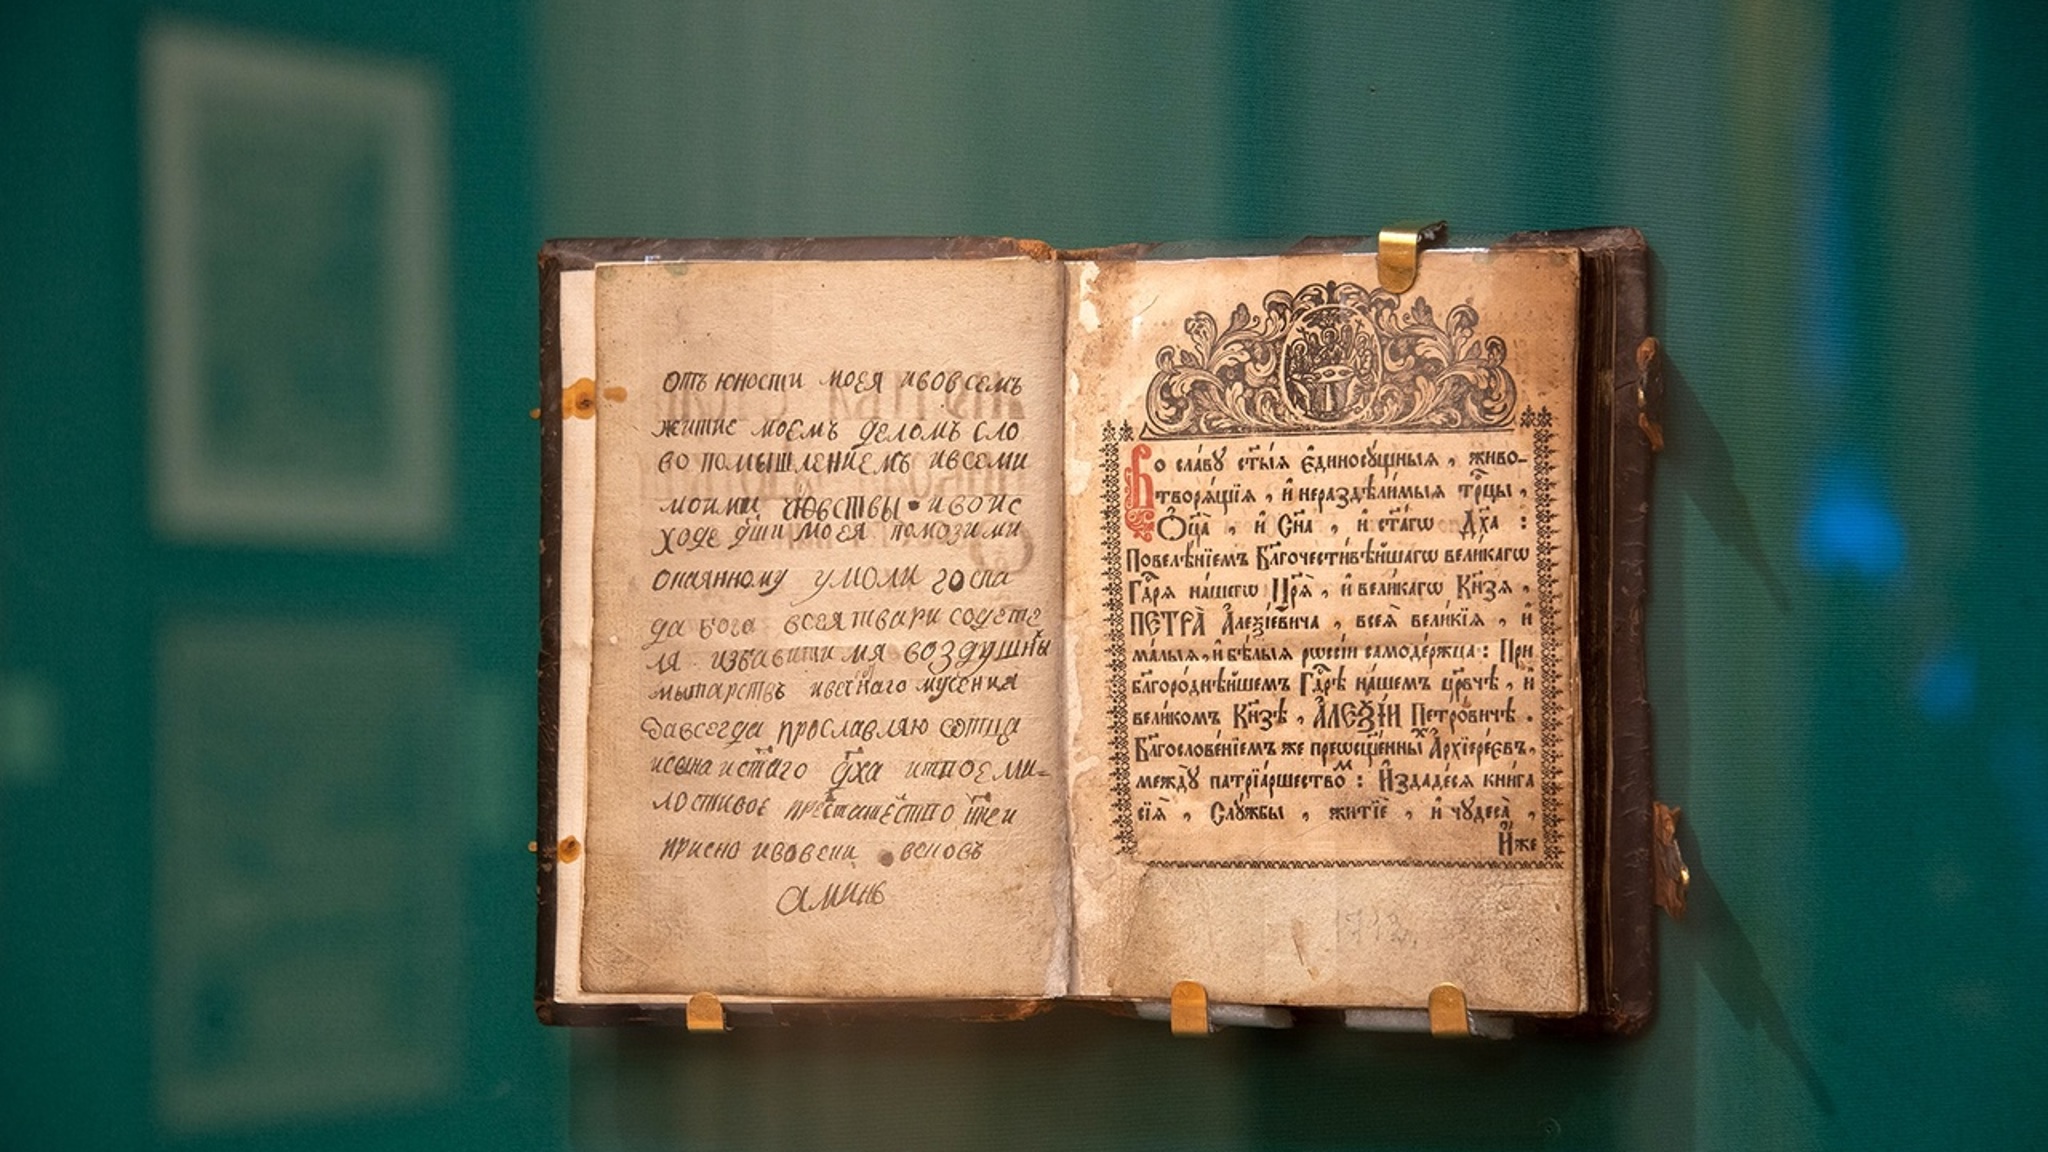 отъ юности моея ивовсемъ
житие моемъ деломъ сло
во помышлениемъ ивсеми
моими чювствы ивоис
ходе дши моея помозими
окаянному умоли госпо
да бога всея твари содете
ля избавити мя воздушны
мытарствъ ивечнаго мучения
давсегда прославляю отца
исна истаго дха итвое ми-
лостивое
присно ивовеки вековъ
аминь
Во сла́вꙋ ст҃ы́ѧ є҆диносꙋ́щныѧ , живо-
творѧ́щїѧ , и҆ нераздѣли́мыѧ трⷪ҇цы ,
Ѻ҆ц҃а̀ , и҆ Сн҃а , и҆ ст҃а́гѡ Дх҃а :
Повелѣ́нїемъ Бл҃гочести́вѣйшагѡ вели́кагѡ
Гдⷭ҇рѧ на́шегѡ Цр҃ѧ̀ , и҆ вели́кагѡ Кн҃зѧ ,
ПЕТРА̀ А҆леѯі́евича , всеѧ̀ вели́кїѧ , и҆
ма́лыѧ , и҆ бѣ́лыѧ рѡссі́и самоде́ржца : При
бл҃горо́днѣйшемъ Гдⷭ҇рѣ на́шемъ цр҃е́вчѣ , и҆
вели́комъ Кн҃зѣ , А҆ЛЕѮІ́И Петро́вичѣ .
Бл҃гослове́нїемъ же преѡсщ҃е́нныⷯ А҆рхїере́євъ ,
междꙋ̀ патрїа́ршествоⷨ : И҆здаде́сѧ кни́га
сїѧ̀ , Слꙋ́жбы , житїѐ , и҆ чꙋдеса̀ ,
И҆́же